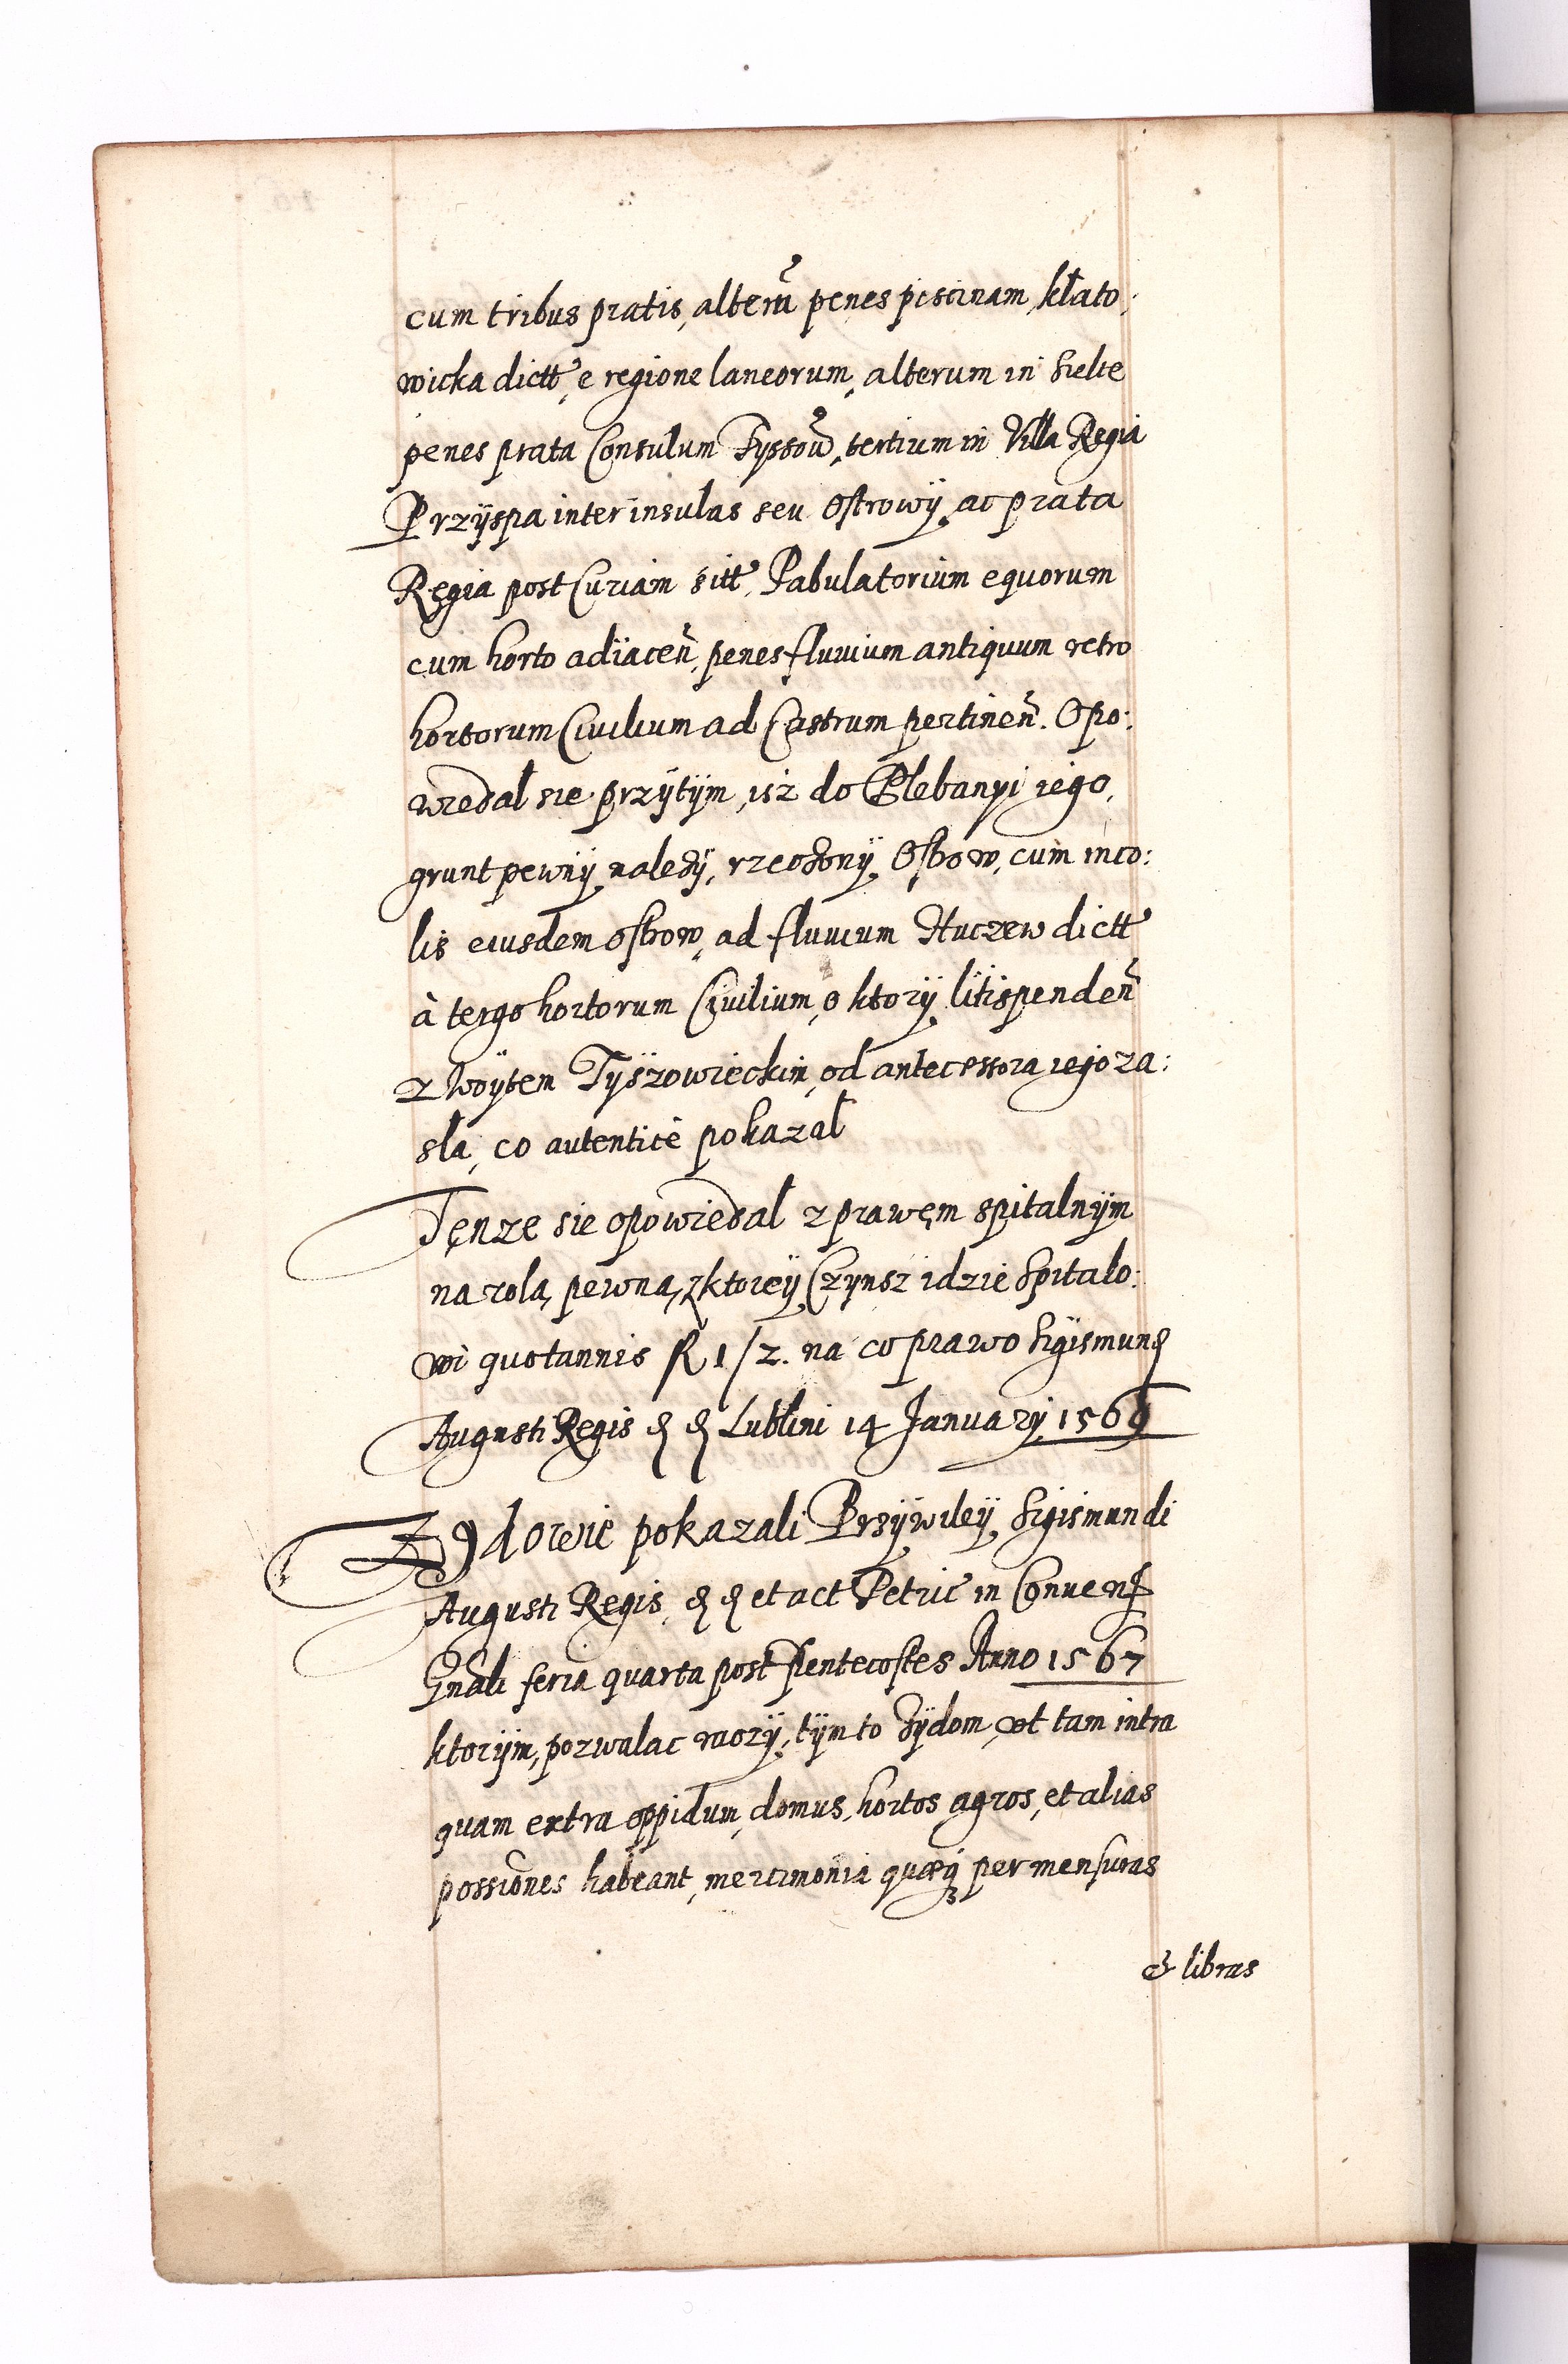 cum tribus pratis, alterũ penes piscinam, kłato:
wicka dictt, e regione laneorum, alterum in Sielte
penes prata Consulum Tyssow, tertium in Villa Regia
Przÿspa inter insulas seu Ostrowÿ, ac prata
Regia post Curiam sitt, Pabulatorium equorum
cum horto adiaceñ, penes fluuium antiquum retro
hortorum Ciuilium ad Castrum pertineñ. Opo:
wiedal sie przÿtÿm, isz do Plebanyi iego,
grunt pewnÿ, należÿ, rzeczonÿ, Ostrow, cum inco:
lis eiusdem Ostrow, ad fluuium Huczew dictt
à tergo hortorum Ciuilium, o ktorÿ, litispendeñ
z Woÿtem Tÿszowieckim, od antecessora iego za:
sla, co autenticè pokazal
Tenze sie opowiedal z prawem spitalnÿm
na rola, pewna, z ktoreÿ, Czynsz idzie Spitalo:
wi quotannis R 1/2. na co prawo Sigismund
Augusti Regis d d Lublini 14 January, 1569
Zydowie pokazali Przÿwileÿ, Sigismundi
Augusti Regis, d d et act Petric in Conuent
Gñali feria quarta post Pentecostes Anno 1567
ktorÿm, pozwalac raczÿ, tÿm to Zÿdom, vt tam intra
quam extra oppidum, domus, hortos agros, et alias
possiones habeant, mercimonia quæq per mensuras
& libras